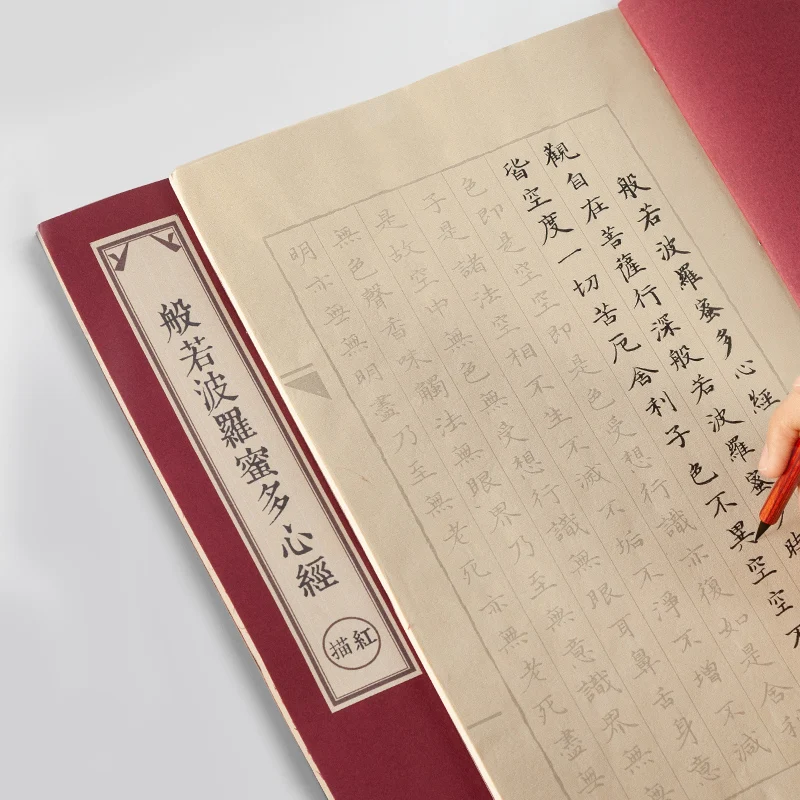 般若波羅蜜多心經
觀自在菩薩行深般若波羅蜜時
皆空度一切苦厄舍利子色不異空空不
色即是空空即是色受想行識亦復如是舍利
子是諸法空相不生不滅不垢不淨不增不減
是故空中無色無受想行識無眼耳鼻舌身意
無色聲香味觸法無眼界乃至無意識界無
明亦無無明盡乃至無老死亦無老死盡無
般若波羅蜜多心經
描紅